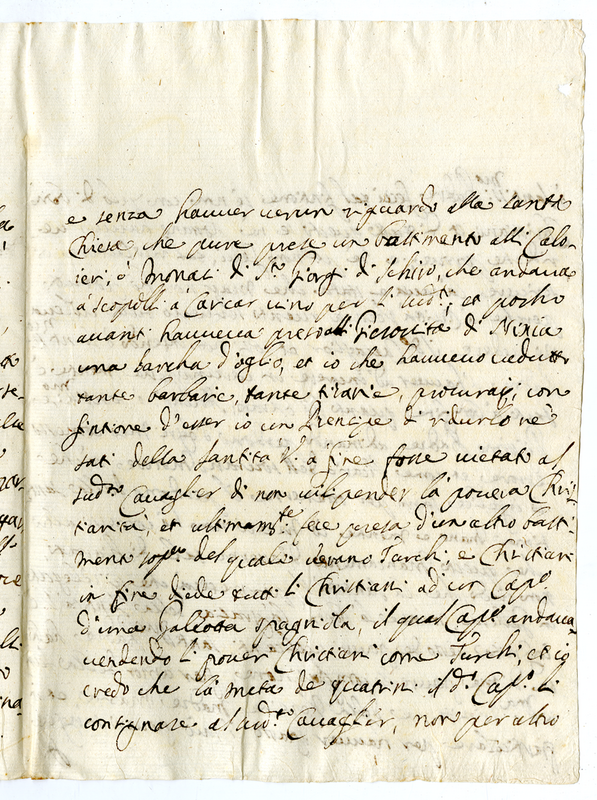 e senza hauuer uerun riguardo alla santa
Chiesa, che pure prese un battimento alli Calo-
ieri, ó Monaci di Sto. Giorgi di Schiro, che andaua
á Scopoli á Carcar uino per li sudti, et pocho
auanti haueua preso alli Giesouita di Nixia
una barcha d'oglio, et io che haueuo ueduto
tante barbarie, tante tiranie, procurai, con
fintione d'esser io un Prencipe di ridurlo ne
Stati della Santita Sa. a fine fosse uietato al
sudto Caualier di non uilipender la pouera Chris-
tianita, et ultimamte. fece presa d'un altro batti-
mento sopa. del quale u'erano Turchi, e Christiani
in fine diede tutti li Christiani ad un Capo.
d'una Galeotta spagnola, il qual Capo. andaua
uendendo li poueri Christiani come Turchi, et io
credo che la metá de quatrini il do. Capo. li
consignase al sudto. Caualier, non per altro